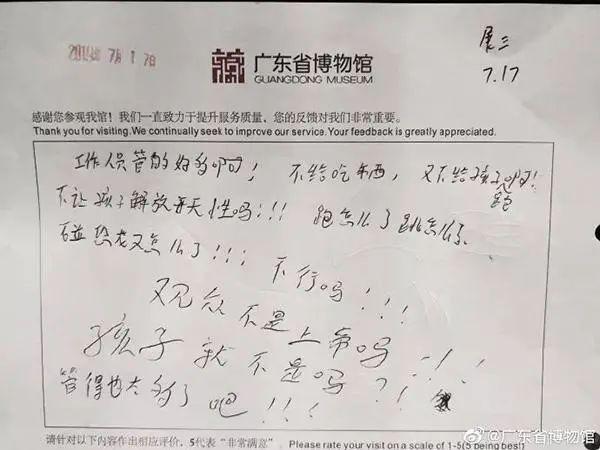 2019年 7月 1 7日
广东省博物馆
GUANGDONG MUSEUM
展三
7.17
感谢您参观我馆！我们一直致力于提升服务质量，您的反馈对我们非常重要。
Thank you for visiting. We continually seek to improve our service. Your feedback is greatly appreciated.
工作人员管的好多啊！ 不给吃东西，又不给孩子跑啊！
不让孩子解放天性吗！！！ 跑怎么了跳怎么了
碰恐龙又怎么了！！！ 不行吗！！！
观众不是上帝吗！！！
孩子就不是吗？！！
管得也太多了吧！！！
请针对以下内容作出相应评价，5代表“非常满意”。 Please rate your visit on a scale of 1-5(5 being best)
@广东省博物馆